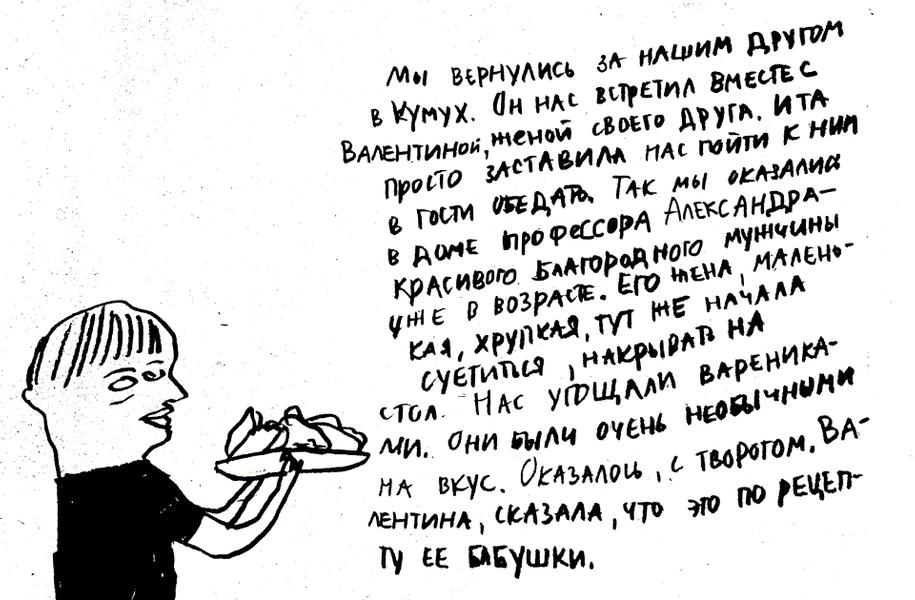 Мы вернулись за нашим другом
в Кумух. Он нас встретил вместе с
Валентиной, женой своего друга. И та
просто заставила нас пойти к ним
в гости обедать. Так мы оказались
в доме профессора Александра–
красивого благородного мужчины
уже в возрасте. Его жена, малень-
кая, хрупкая, тут же начала
суетиться, накрывать на
стол. Нас угощали вареника-
ми. Они были очень необычными
на вкус. Оказалось, с творогом. Ва-
лентина, сказала, что это по рецеп-
ту ее бабушки.